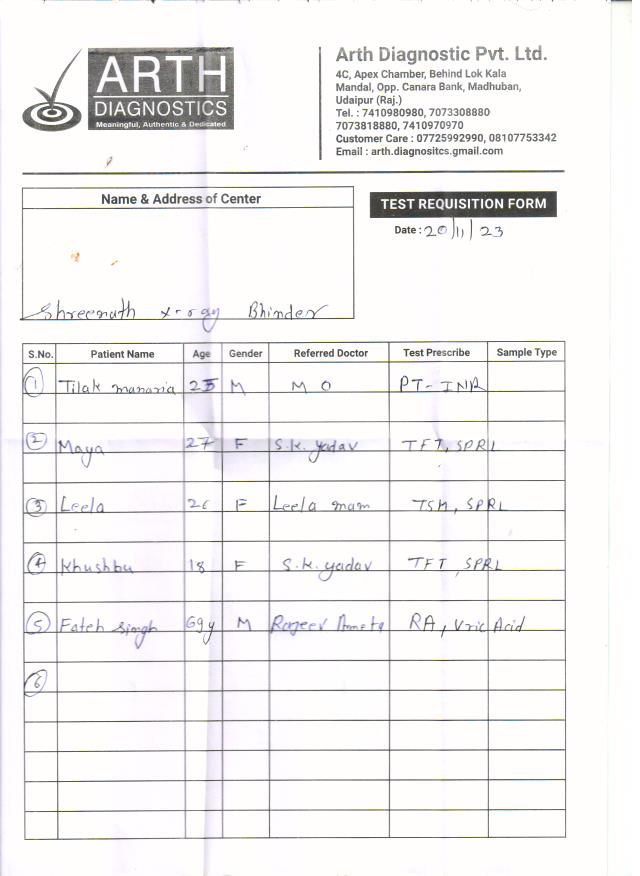 ARTH
DIAGNOSTICS
Meaningful, Authentic & Dedicated
Arth Diagnostic Pvt. Ltd.
4C, Apex Chamber, Behind Lok Kala
Mandal, Opp. Canara Bank, Madhuban,
Udaipur (Raj.)
Tel. : 7410980980, 7073308880
7073818880, 7410970970
Customer Care : 07725992990, 08107753342
Email : arth.diagnositcs.gmail.com
Name & Address of Center
TEST REQUISITION FORM
Date : 20/11/23
Shreenath x-ray Bhinder
S.No. Patient Name Age Gender Referred Doctor Test Prescribe Sample Type
1 Tilak manaria 25 M M O PT-INR
2 Maya 27 F S.K. yadav TFT, SPRL
3 Leela 26 F Leela mam TSH, SPRL
4 Khushbu 18 F S.K. yadav TFT, SPRL
5 Fateh Singh 69y M Rajeev Ameta RA, Uric Acid
6